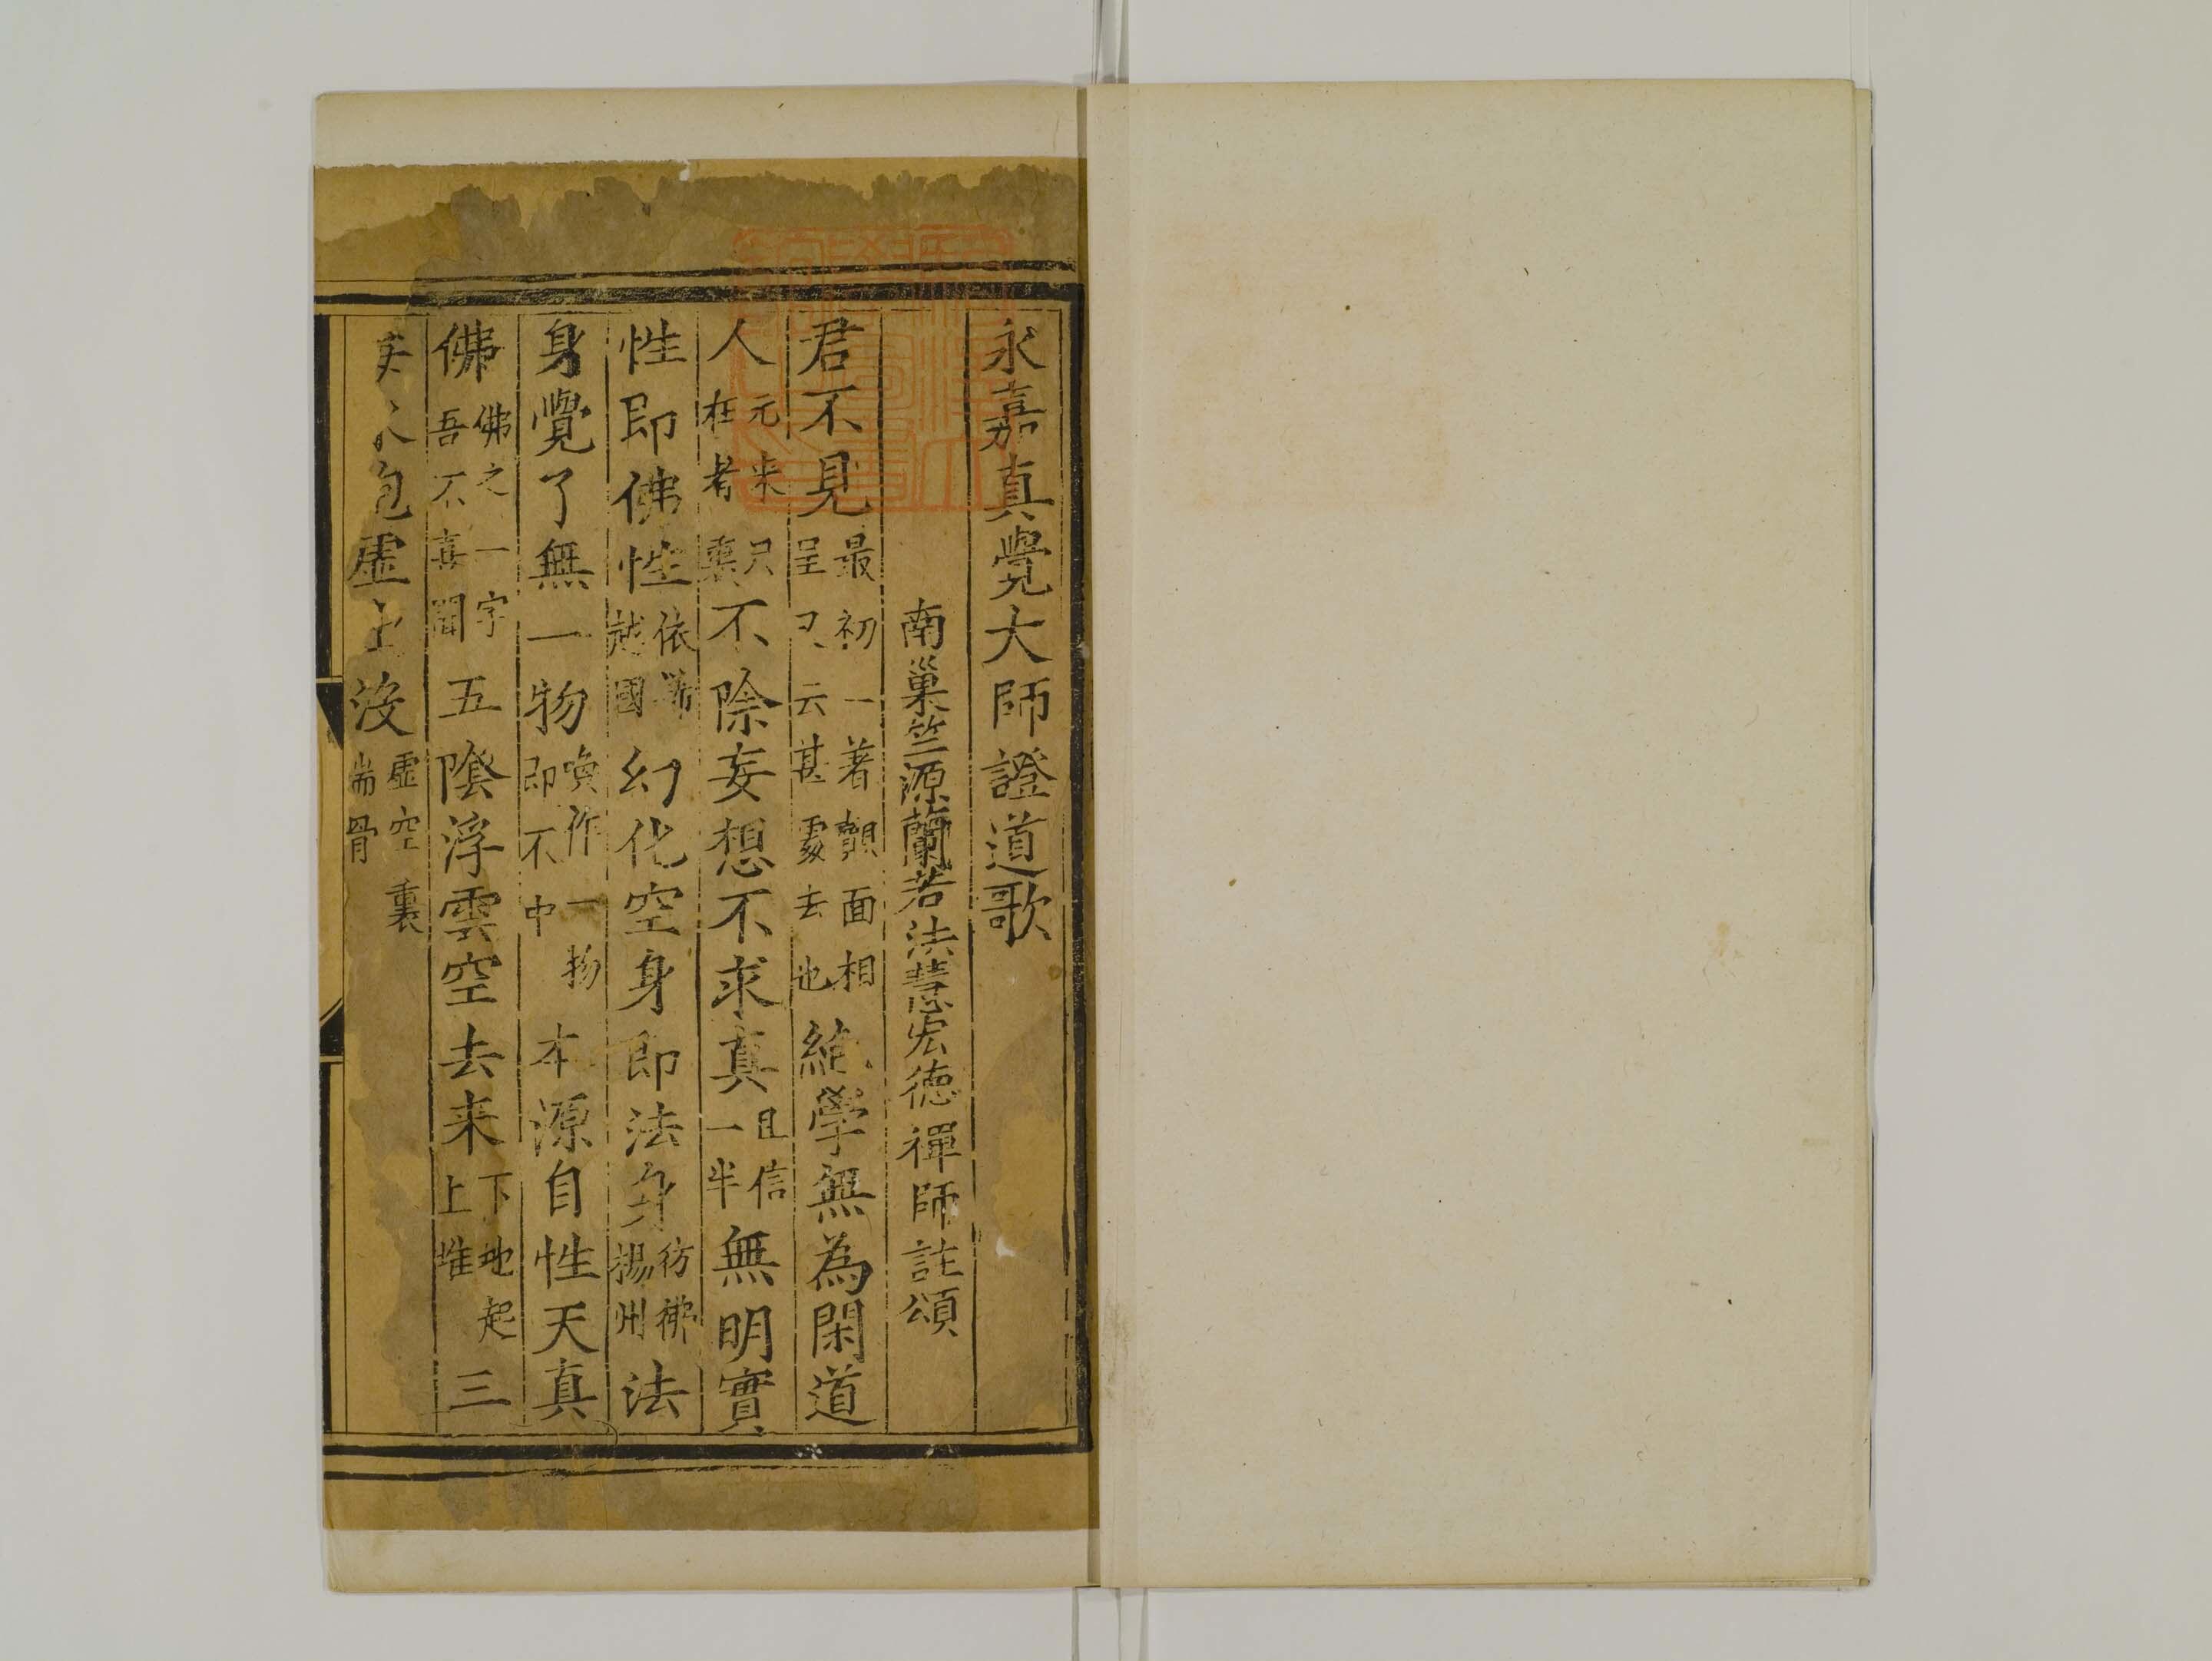 永嘉真覺大師證道歌
南巢竺源蘭若法慧宏德禪師註頌
君不見最初一著覿面相呈又云甚處去也絶學無為閑道
人元来只在者裏不除妄想不求真且信一半無明實
性即佛性依俙越國幻化空身即法身彷彿揚州法
身覺了無一物喚作一物即不中本源自性天真
佛佛之一字吾不喜聞五陰浮雲空去来下地起上堆三
泡虛出没虛空裏